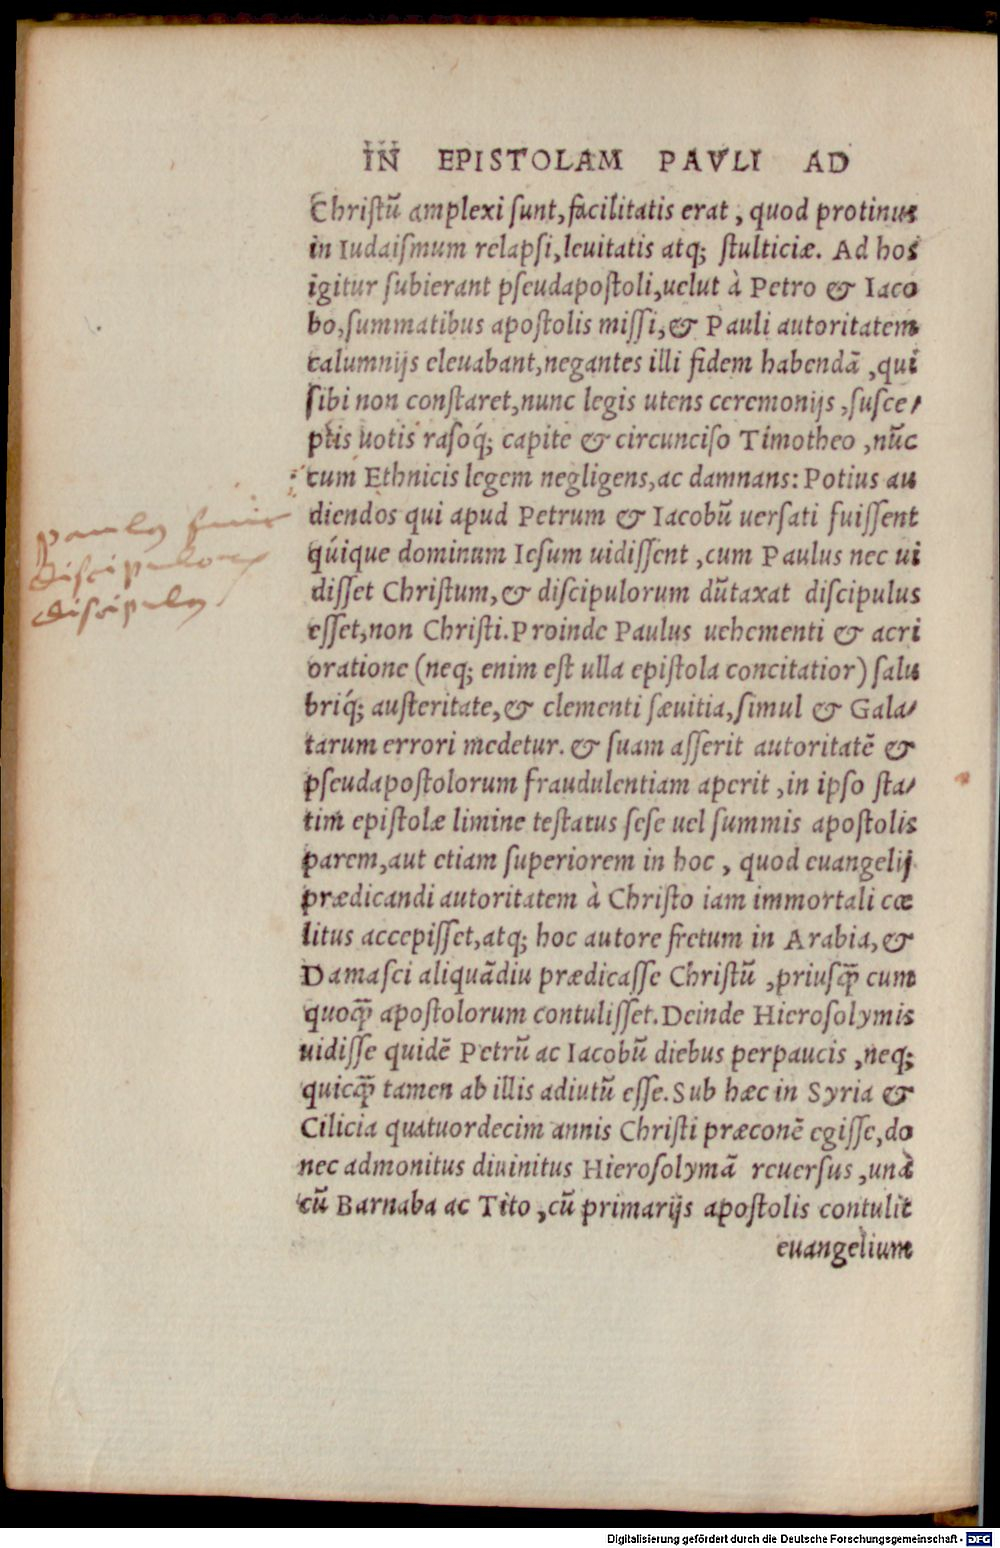 IN EPISTOLAM PAVLI AD
Christũ amplexi ſunt, facilitatis erat, quod protinus
in Iudaiſmum relapſi, leuitatis atq; ſtulticiæ. Ad hos
igitur ſubierant pſeudapoſtoli, uelut à Petro & Iaco
bo, ſummatibus apoſtolis miſſi, & Pauli autoritatem
calumnijs eleuabant, negantes illi fidem habendã, qui
ſibi non conſtaret, nunc legis utens ceremonijs, ſuſce/
ptis uotis raſoq́; capite & circunciſo Timotheo, nũc
cum Ethnicis legem negligens, ac damnans: Potius au
diendos qui apud Petrum & Iacobũ uerſati fuiſſent
quíique dominum Ieſum uidiſſent, cum Paulus nec ui
diſſet Chriſtum, & diſcipulorum dũtaxat diſcipulus
eſſet, non Chriſti. Proinde Paulus uehementi & acri
oratione (neq; enim eſt ulla epiſtola concitatior) ſalu
briq́; auſteritate, & clementi ſæuitia, ſimul & Gala/
tarum errori medetur. & ſuam aſſerit autoritatẽ &
pſeudapoſtolorum fraudulentiam aperit, in ipſo ſta/
tim epiſtolæ limine teſtatus ſeſe uel ſummis apoſtolis
parem, aut etiam ſuperiorem in hoc, quod euangelij
prædicandi autoritatem à Chriſto iam immortali cœ
litus accepiſſet, atq; hoc autore fretum in Arabia, &
Damaſci aliquãdiu prædicaſſe Chriſtũ, priuſq̃ cum
quoq̃ apoſtolorum contuliſſet. Deinde Hieroſolymis
uidiſſe quidẽ Petrũ ac Iacobũ diebus perpaucis, neq;
quicq̃ tamen ab illis adiutũ eſſe. Sub hæc in Syria &
Cilicia quatuordecim annis Chriſti præconẽ egiſſe, do
nec admonitus diuinitus Hieroſolymã reuerſus, unà
cũ Barnaba ac Tito, cũ primarijs apoſtolis contulit
euangelium
paulus fuit
diſcipulorum
diſcipulus
Digitalisierung gefördert durch die Deutsche Forschungsgemeinschaft - DFG